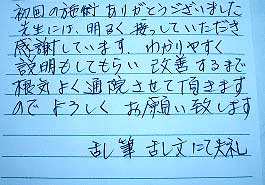 初回の施術ありがとうございました
先生には、明るく接していただき
感謝しています。わかりやすく
説明もしてもらい 改善するまで
根気よく通院させて頂きます
のでよろしく お願い致します
乱筆 乱文にて失礼